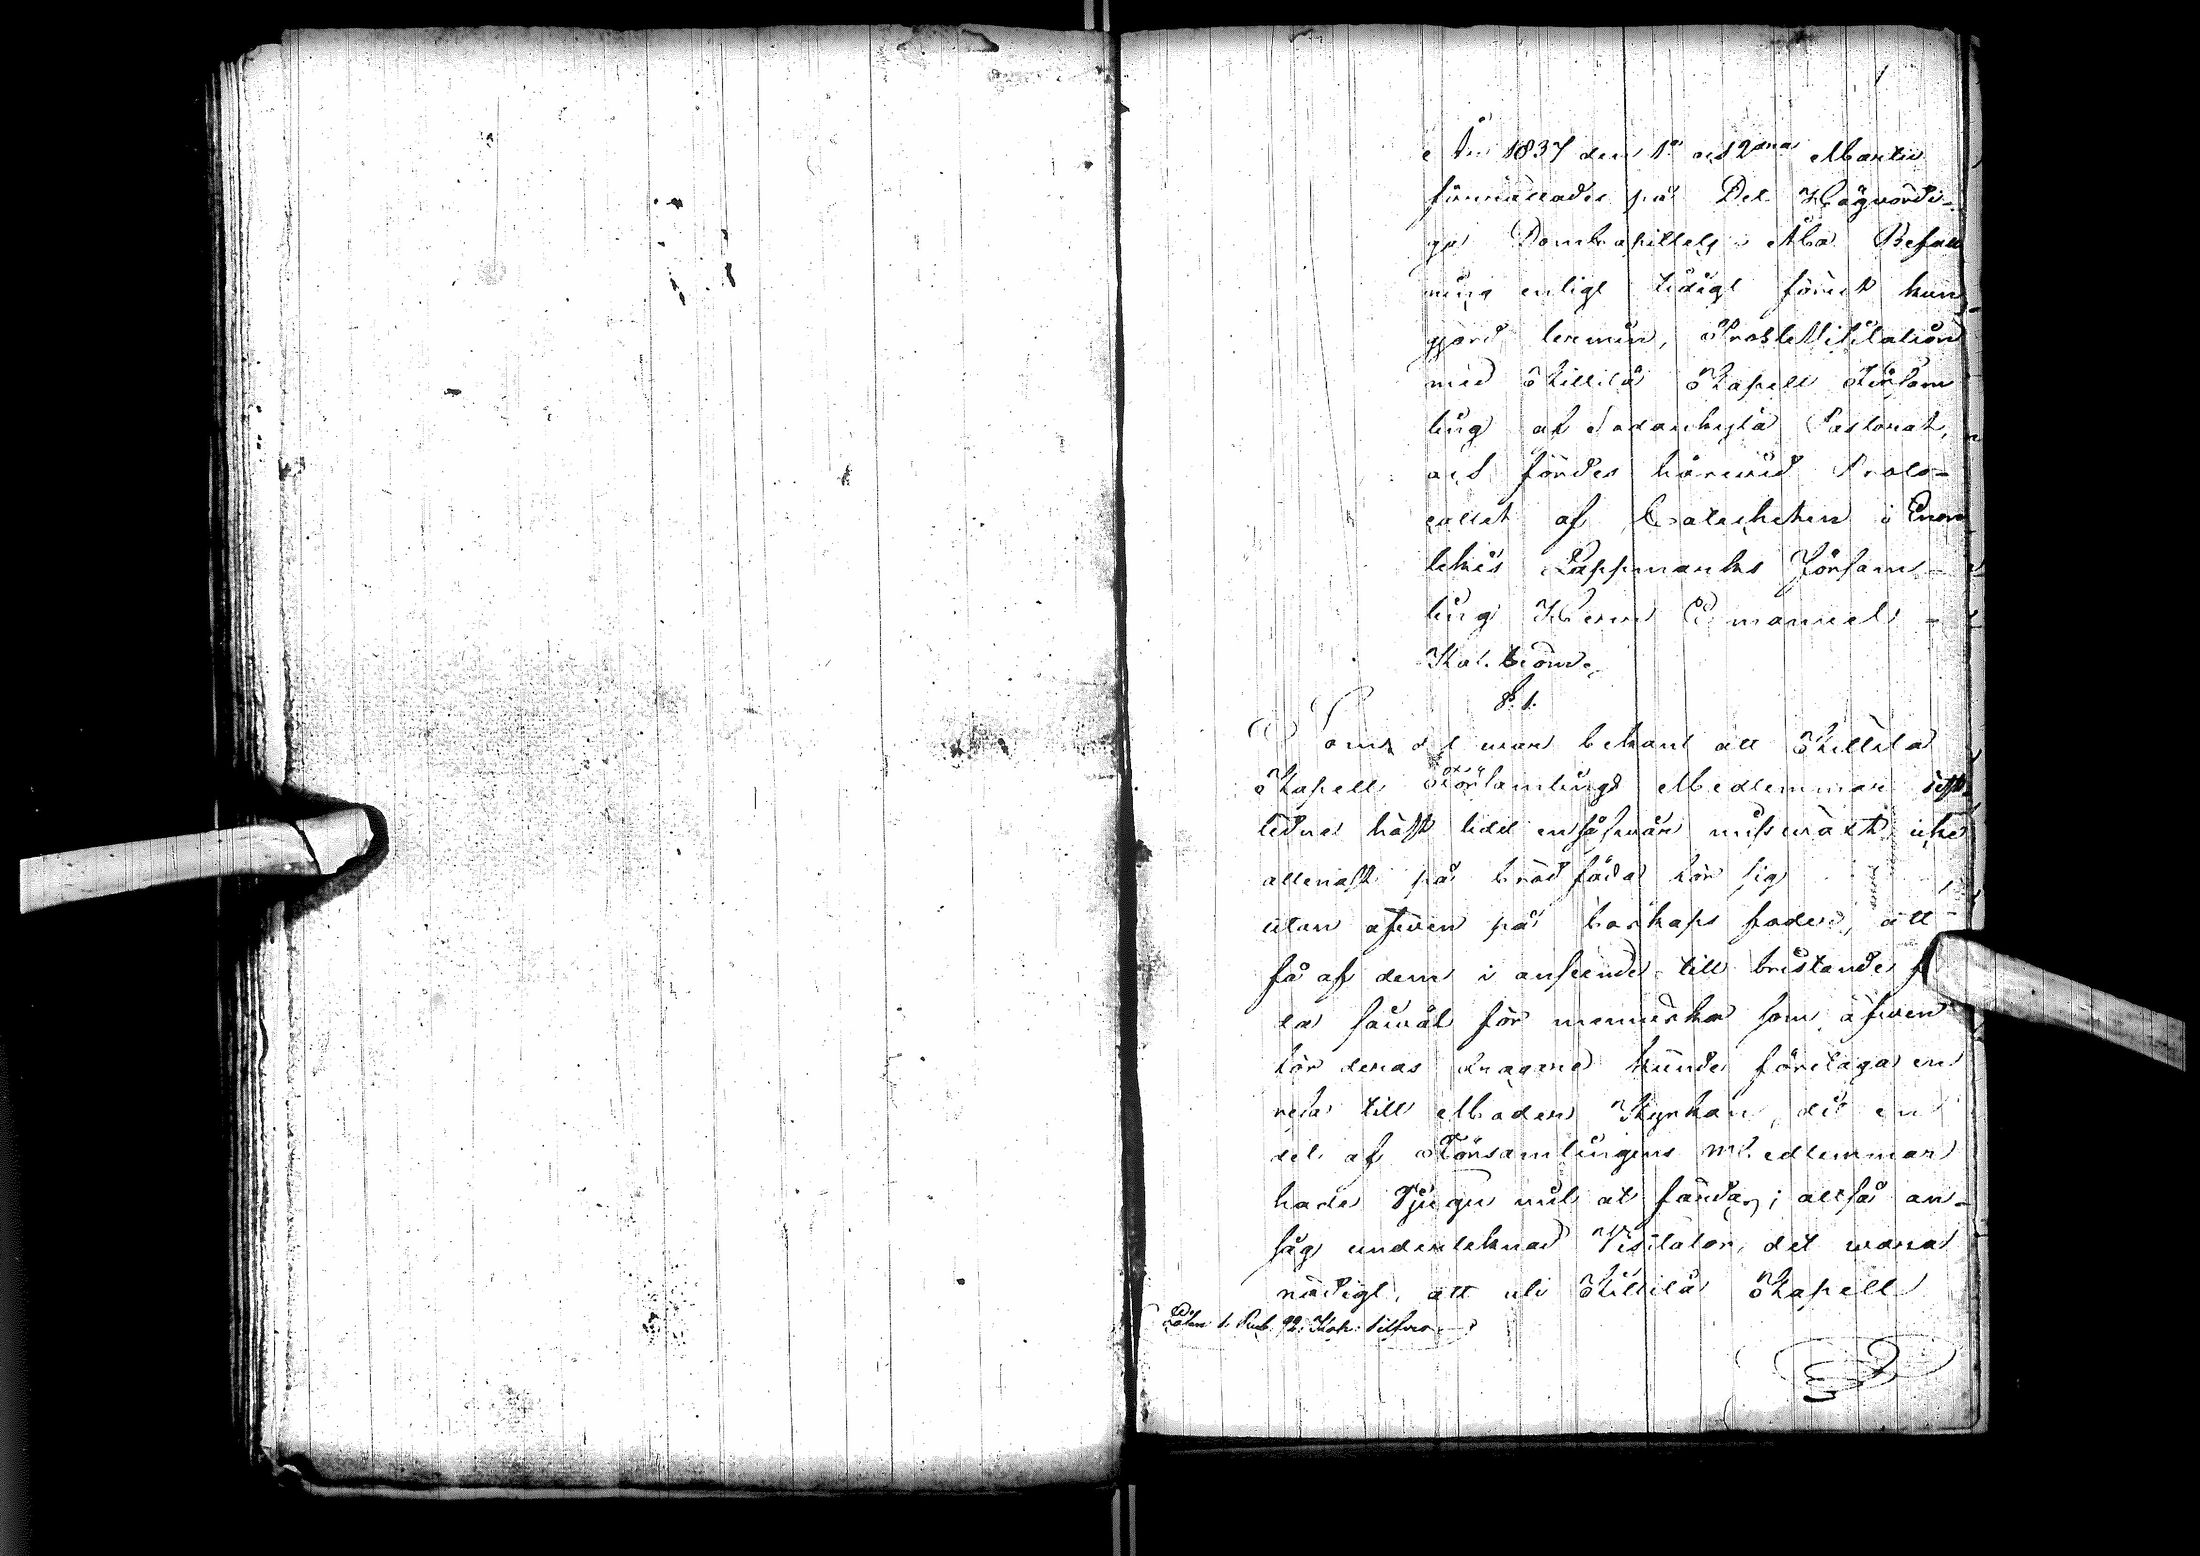 1
År 1837 den 1a och 2dra Martii
förrättades på Det Högvördi-
ga Domkapitlets i Åbo Befall
ning enligt tidigt förut kun-
gjord termin, Prostvisitation
med Kittilä Kapell Försam
ling af Sodankylä Pastorat,
och fördes härvid Proto-
collet af Catecheten i Enon
tekis Lappmarks Församl-
ling Herr Emanuel
Kolström.
§. 1.
Som det war bekant att Kittilä
Kapell Församlings Medlemmar sist-
ledne höst lidit en så svår missväxt icke
allenast på brödföda för sig
utan äfwen på boskaps foder, att
få af dem i anseende till bristande fö
da såwäl för menniskor som äfwen
för deras dragare kunde företaga en
resa till Moder Kyrkan, dit en
del af Församlingens Medlemmar
hade Tjugu mil at färdas; altså an-
såg undertecknad Visitator det wara
nödigt, att uti Kittilä Kapell
Lösen 1 Rub. 92 Kop: Silfver